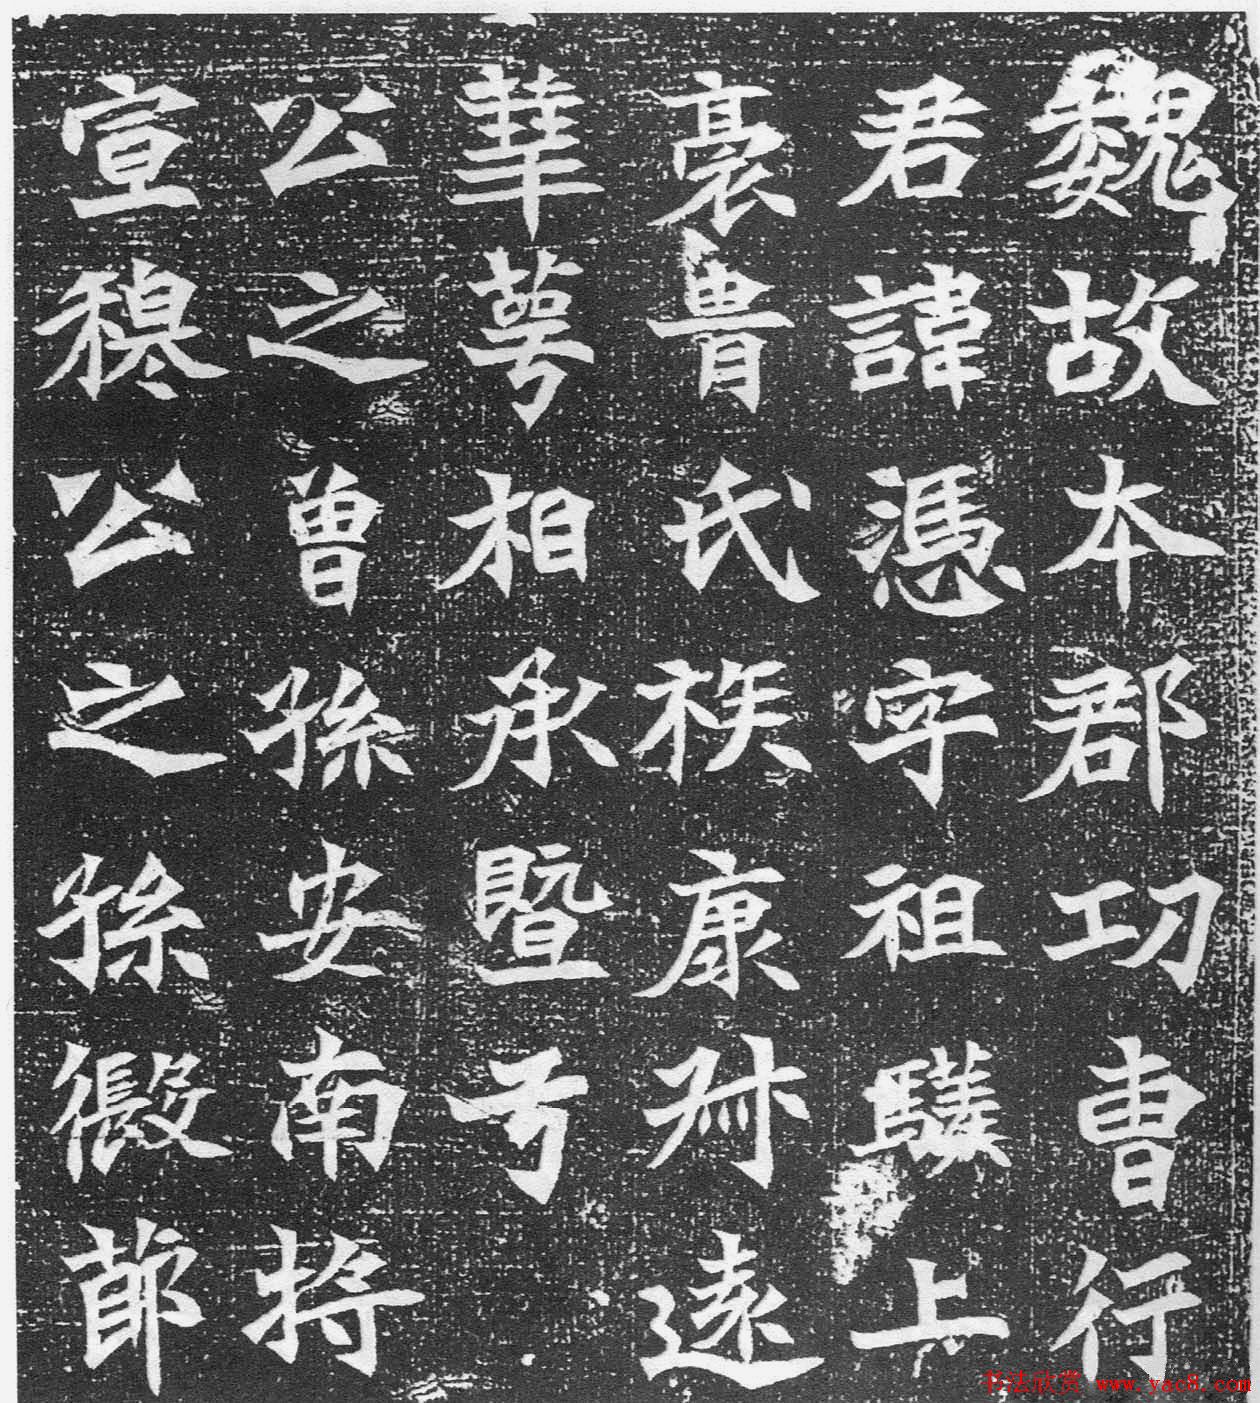 魏故本郡功曹行
君諱憑字祖驎上
裔冑氏族康叔遠
華萼相承暨乎
公之曾孫安南將
宣穆公之孫假節
书法欣赏 www.yac8.com